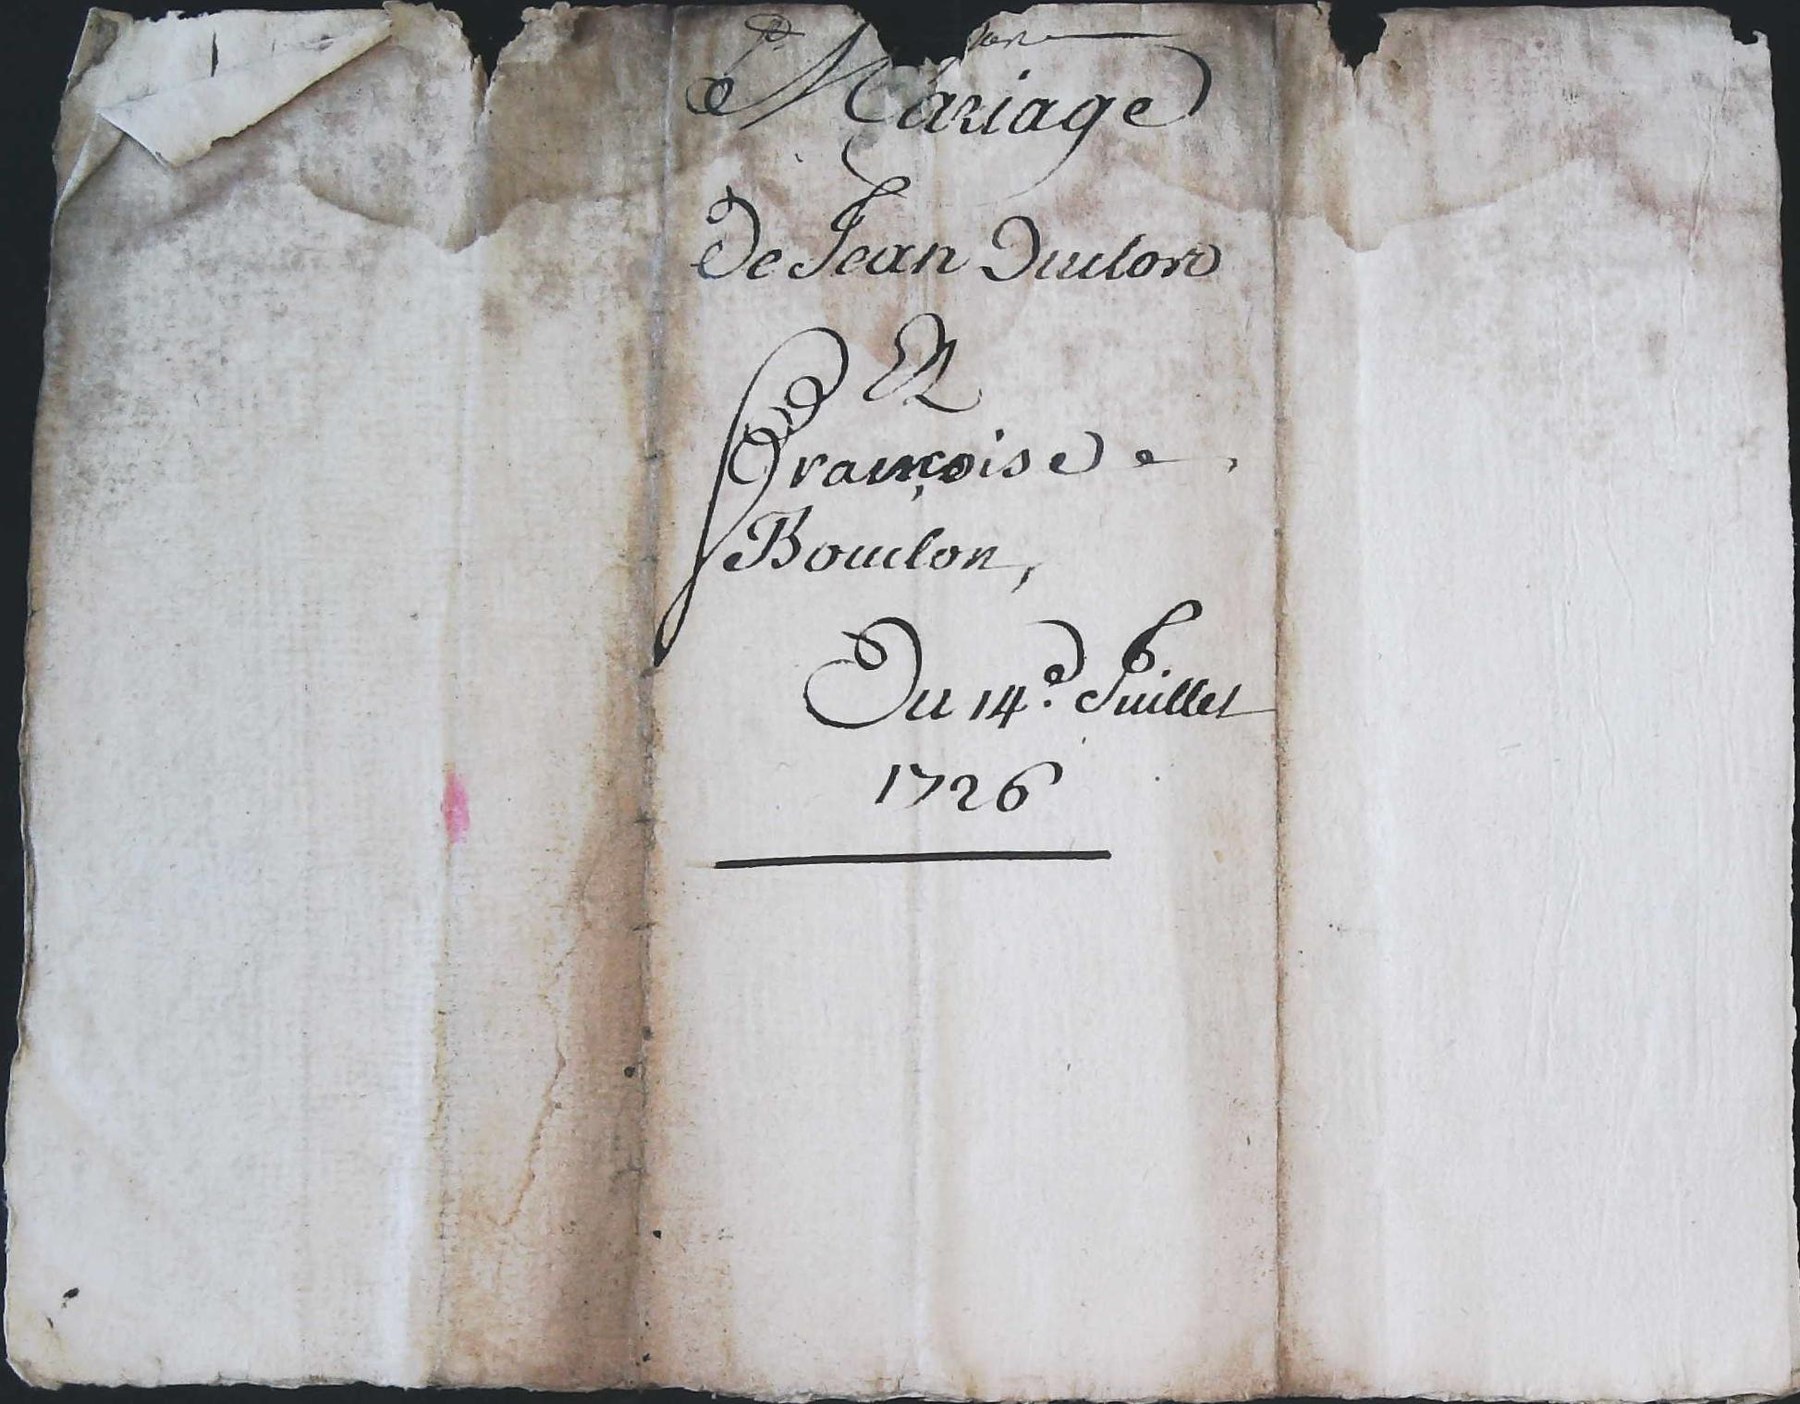 Mariage
De Jean Duclos
Et
Françoise
Bouclon,
Du 14.e Juillet
1726